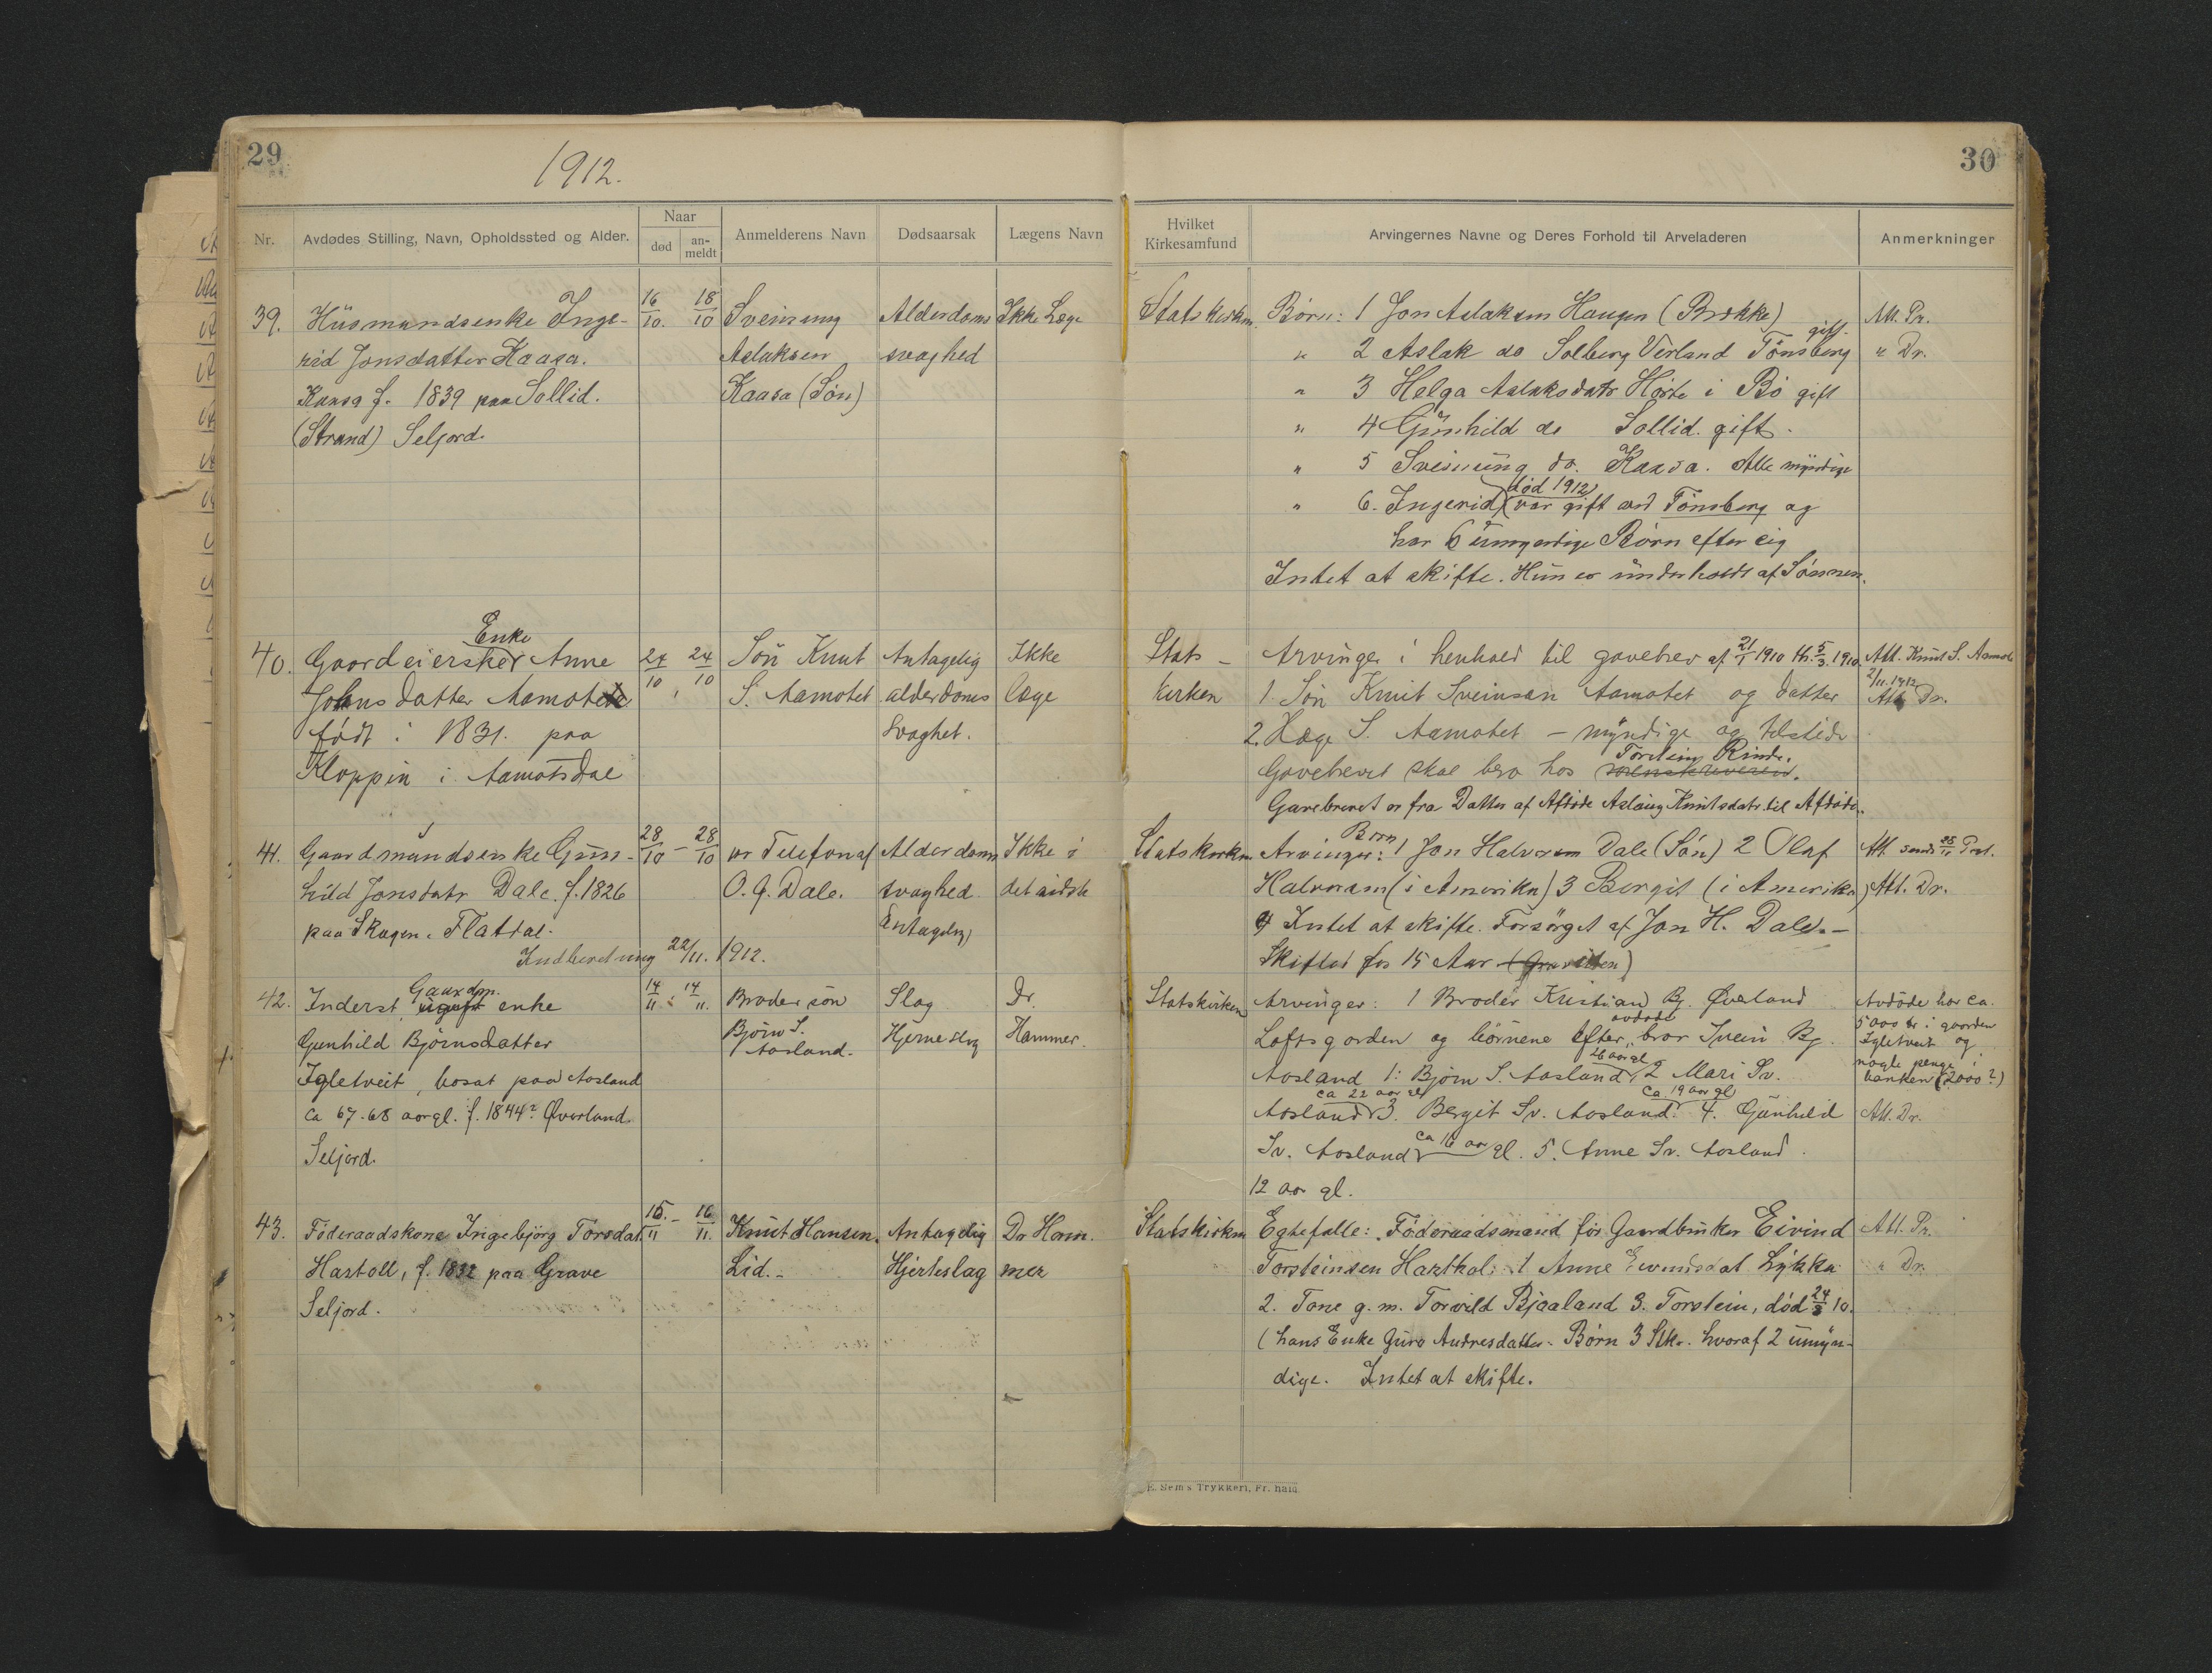 29
1912.
30
Nr.
Avdødes Stilling, Navn, Opholdssted og Alder.
Naar
død
an-
meldt
Anmelderens Navn
Dødsaarsak
Lægens Navn
Hvilket
Kirkesamfund
Arvingernes Navne og Deres Forhold til Arveladeren
Anmerkninger
39. Husmandsenke Inge-
rid Jonsdatter Kaasa.
Kaasa f. 1839 paa Sollid.
(Strand) Seljord.
16/10. 18/10
Sveinung
Aslaksen
Kaasa (Søn)
Alderdoms
svaghed
Ikke Læge
Statskirken
Børn: 1 Jon Aslaksen Haugen (Brekke)
" 2 Aslak do Solberg Verland Tönsberg gift.
" 3 Helga Aslaksdatr Hørte i Bö gift
" 4 Gunhild do Sollid. gift.
" 5 Sveinung do. Kaasa. Alle myndige
" 6. Ingerid (død 1912) (var gift ved Tönsberg og
har 6 umyndige Børn efter sig
Intet at skifte. Hun er underholdt af Sønnen.
Att. Pr.
" Dr.
40. Gaardeierske Enke Anne
Johnsdatter Aamot
født i 1831. paa
Kloppin i Aamotsdal
24/10 24/10
Søn Knut
S. Aamotet
Antagelig
alderdoms
svaghet.
Ikke
læge
Stats-
kirken
Arvinger i henhold til gavebrev af 21/1 1910 th. 5/3. 1910.
1. Søn Knut Sveinsen Aamotet og datter
2. Hæge S. Aamotet – myndige og tilstede
Gavebrevet skal bero hos sorenskriveren. Torstein Rinde.
Gavebrevet er fra Datter af Afdøde Aslaug Knutsdatr. til Afdøde.
Att. Knut S. Aamote
2/11. 1912
Att. Dr.
41. Gaardmandsenke Gun-
hild Jonsdatr Dale. f. 1826
paa Skogen. Flatdal.
Indberetning 22/11. 1912.
28/10 – 28/10
pr Telefon af
O. J. Dale.
Alderdoms
svaghed
Antagelig
Ikke i
det sidste
Statskirken
Arvinger: Børn 1 Jon Halvorsen Dale (Søn) 2 Olaf
Halvorsen (i Amerika) 3 Bergit (i Amerika)
4 Intet at skifte. Forsørget af Jon H. Dale. –
Skiftet for 15 Aar
Att. sendt 25/11 Prst.
Att. Dr.
42. Inderst, ugift Gaardm. enke
Gunhild Bjørnsdatter
Igletveit, bosat paa Aasland
ca 67-68 aar gl. f. 1844? Øverland.
Seljord.
14/11 14/11.
Broder søn
Bjørn S.
Aasland.
Slag
Hjerneslag
Dr.
Hammer.
Statskirken
Arvinger: 1 Broder Kristian Bj. Øverland
Loftsgorden og børnene efter avdøde bror Svein Bj.
Aasland 1: Bjørn S. Aasland, 26 aar gl 2 Mari Sv.
Aasland ca 22 aar gl 3. Bergit Sv. Aasland. ca 19 aar gl 4. Gunhild
Sv. Aasland ca 16 aar gl. 5. Anne Sv. Aasland
12 aar gl.
Avdøde har ca.
5000 kr i gaarden
Igletveit og
nogle penge i
banken (2000?)
Att. Dr.
43. Föderaadskone Ingebjörg Torsdat.
Hartoll, f. 1832 paa Grave
Seljord.
15./11 – 16/11.
Knut Hansen
Lid. –
Antagelig
Hjerteslag
Dr Ham-
mer
Statskirken
Egtefælle: Föderaadsmand før Gaardbruker Eivind
Torsteinsen Hartkol: 1 Anne Eivindsdat Lykkja
2. Tone g. m. Torvild Bjaaland 3. Torstein, död 24/3 10.
(hans Enke Guro Andresdatter. Börn 3 Stkr. hvoraf 2 umyn-
dige. Intet at skifte.
Att. Pr.
" Dr.
E. Sem's Trykkeri, Fr.hald